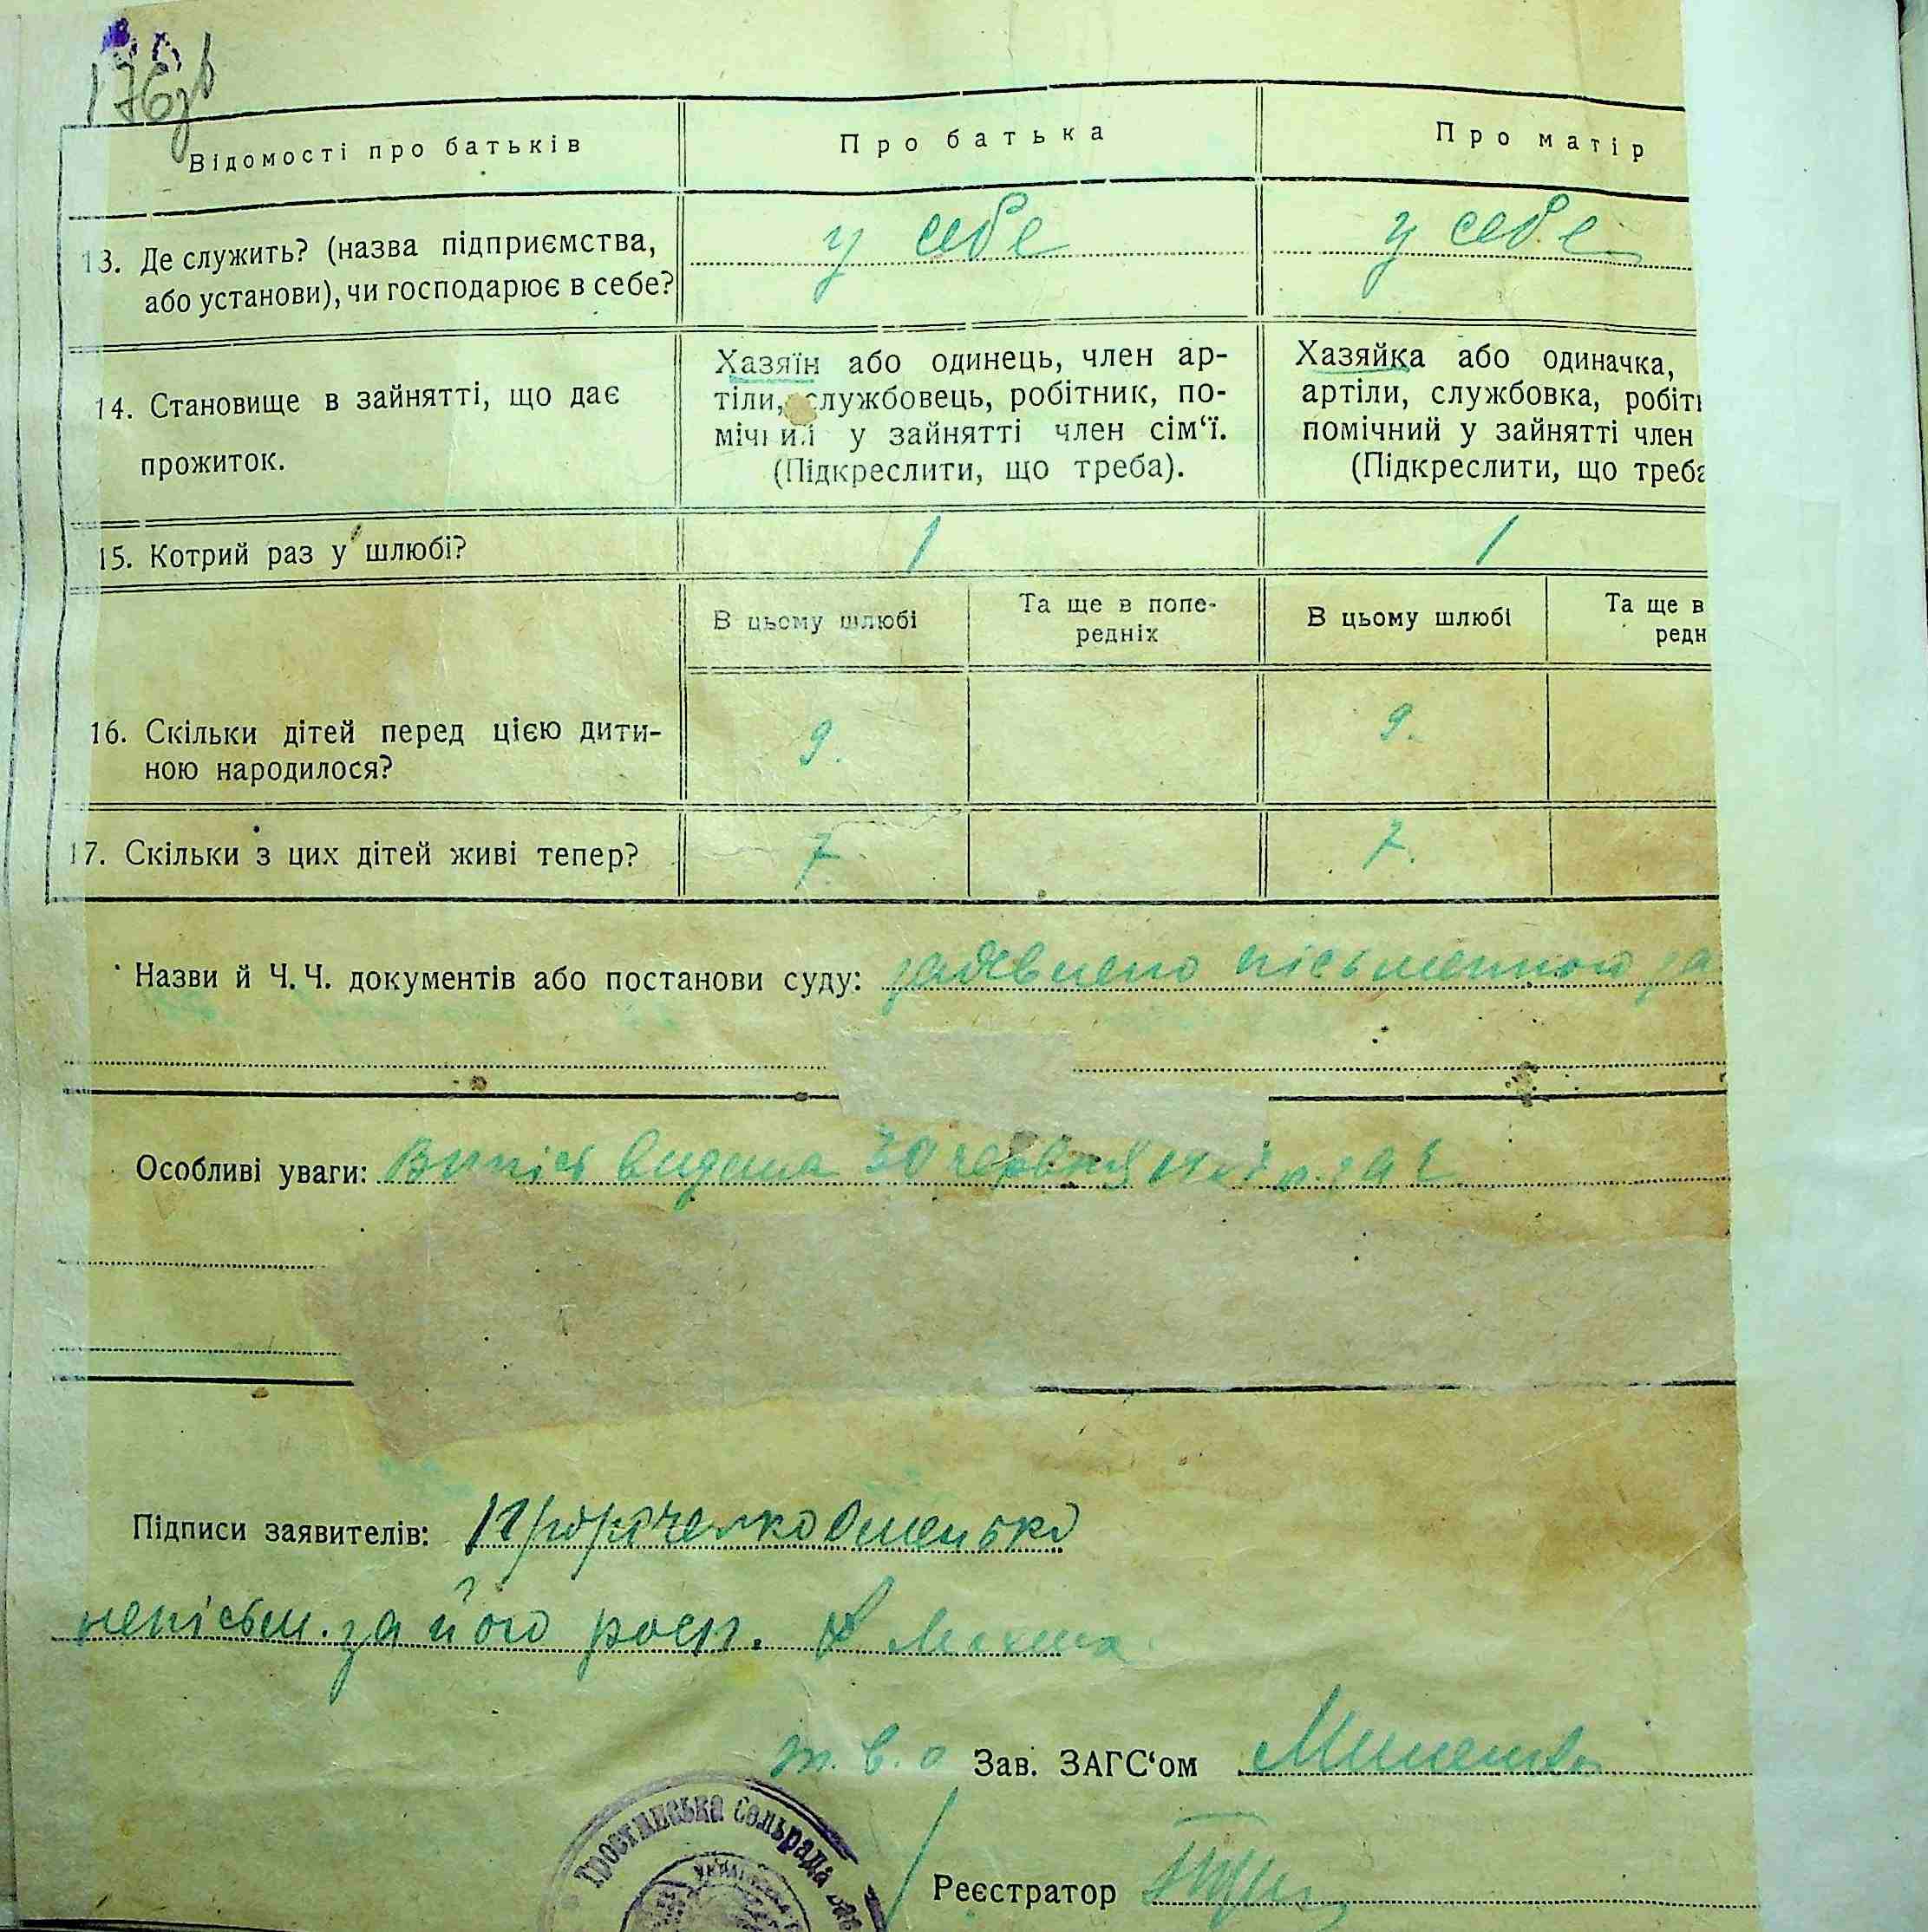 176зв
Відомості про батьків
Про батька
Про матір
13. Де служить? (назва підприємства,
або установи), чи господарює в себе?
у себе
у себе
14. Становище в зайнятті, що дає
прожиток.
Хазяїн або одинець, член ар-
тіли, службовець, робітник, по-
мічний у зайнятті член сім‘ї.
(Підкреслити, що треба).
Хазяйка або одиначка,
артіли, службовка, робітн
помічний у зайнятті член
(Підкреслити, що треба
15. Котрий раз у шлюбі?
1
1
В цьому шлюбі
Та ще в попе-
редніх
В цьому шлюбі
Та ще в
редн
16. Скільки дітей перед цією дити-
ною народилося?
9.
9.
17. Скільки з цих дітей живі тепер?
7.
7.
Назви й Ч. Ч. документів або постанови суду: засвічено письменною за
Особливі уваги: Випись видана 30 червня
Підписи заявителів:
неписьм. за його росп.
т. в. о Зав. ЗАГС‘ом
Тростинська Сельрада
Реєстратор